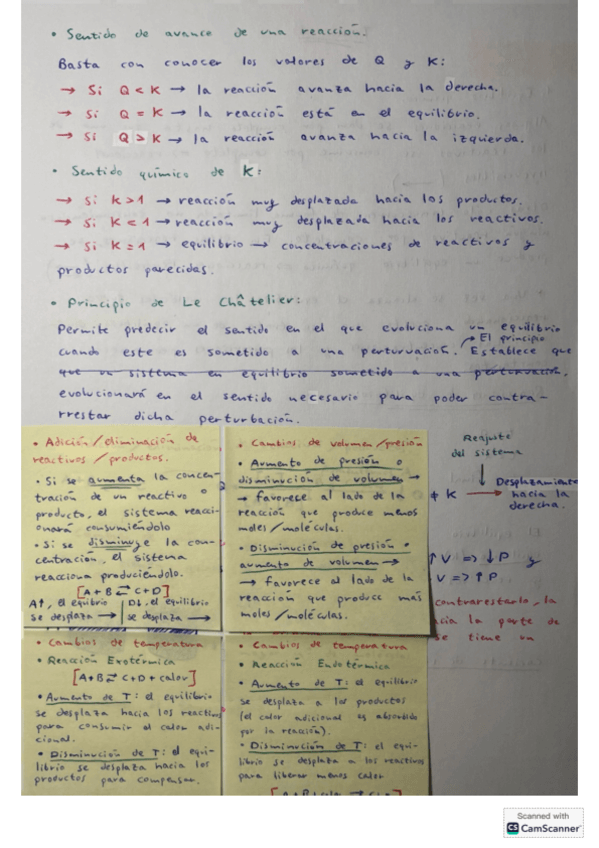 • Sentido de avance de una reacción.
Basta con conocer los valores de Q y K:
→ Si Q < K → la reacción avanza hacia la derecha.
→ Si Q = K → la reacción está en el equilibrio.
→ Si Q > K → la reacción avanza hacia la izquierda.
• Sentido químico de K:
→ Si K > 1 → reacción muy desplazada hacia los productos.
→ Si K < 1 → reacción muy desplazada hacia los reactivos.
→ Si K = 1 → equilibrio → concentraciones de reactivos y
productos parecidas.
• Principio de Le Châtelier:
Permite predecir el sentido en el que evoluciona un equilibrio
cuando este es sometido a una perturvación. El principio
Establece que
que un sistema en equilibrio sometido a una perturvación,
evolucionará en el sentido necesario para poder contra-
rrestar dicha perturbación.
• Adición/eliminación de
reactivos/productos.
• Si se aumenta la concen-
tración de un reactivo o
producto, el sistema reacci-
onará consumiéndolo
• Si se disminuye la con-
centración, el sistema
reacciona produciéndolo.
[A + B ⇄ C + D]
A↑, el equilibrio se desplaza →
D↓, el equilibrio se desplaza →
• Cambios de volumen/presión
• Aumento de presión o
disminución de volumen →
→ favorece al lado de la
reacción que produce menos
moles/moléculas.
• Disminución de presión o
aumento de volumen →
→ favorece al lado de la
reacción que produce más
moles/moléculas.
Reajuste
del sistema
K → Desplazamiento
hacia la
derecha.
↑V => ↓P
V => ↑P
contrarestarlo, la
hacia la parte de
se tiene un
• Cambios de temperatura
• Reacción Exotérmica
[A + B ⇄ C + D + calor]
• Aumento de T: el equilibrio
se desplaza hacia los reactivos
para consumir el calor adi-
cional.
• Disminución de T: el equi-
librio se desplaza hacia los
productos para compensar.
• Cambios de temperatura
• Reacción Endotérmica
• Aumento de T: el equilibrio
se desplaza a los productos
(el calor adicional es absorbido
por la reacción).
• Disminución de T: el equi-
librio se desplaza a los reactivos
para liberar menos calor
Scanned with
CS CamScanner